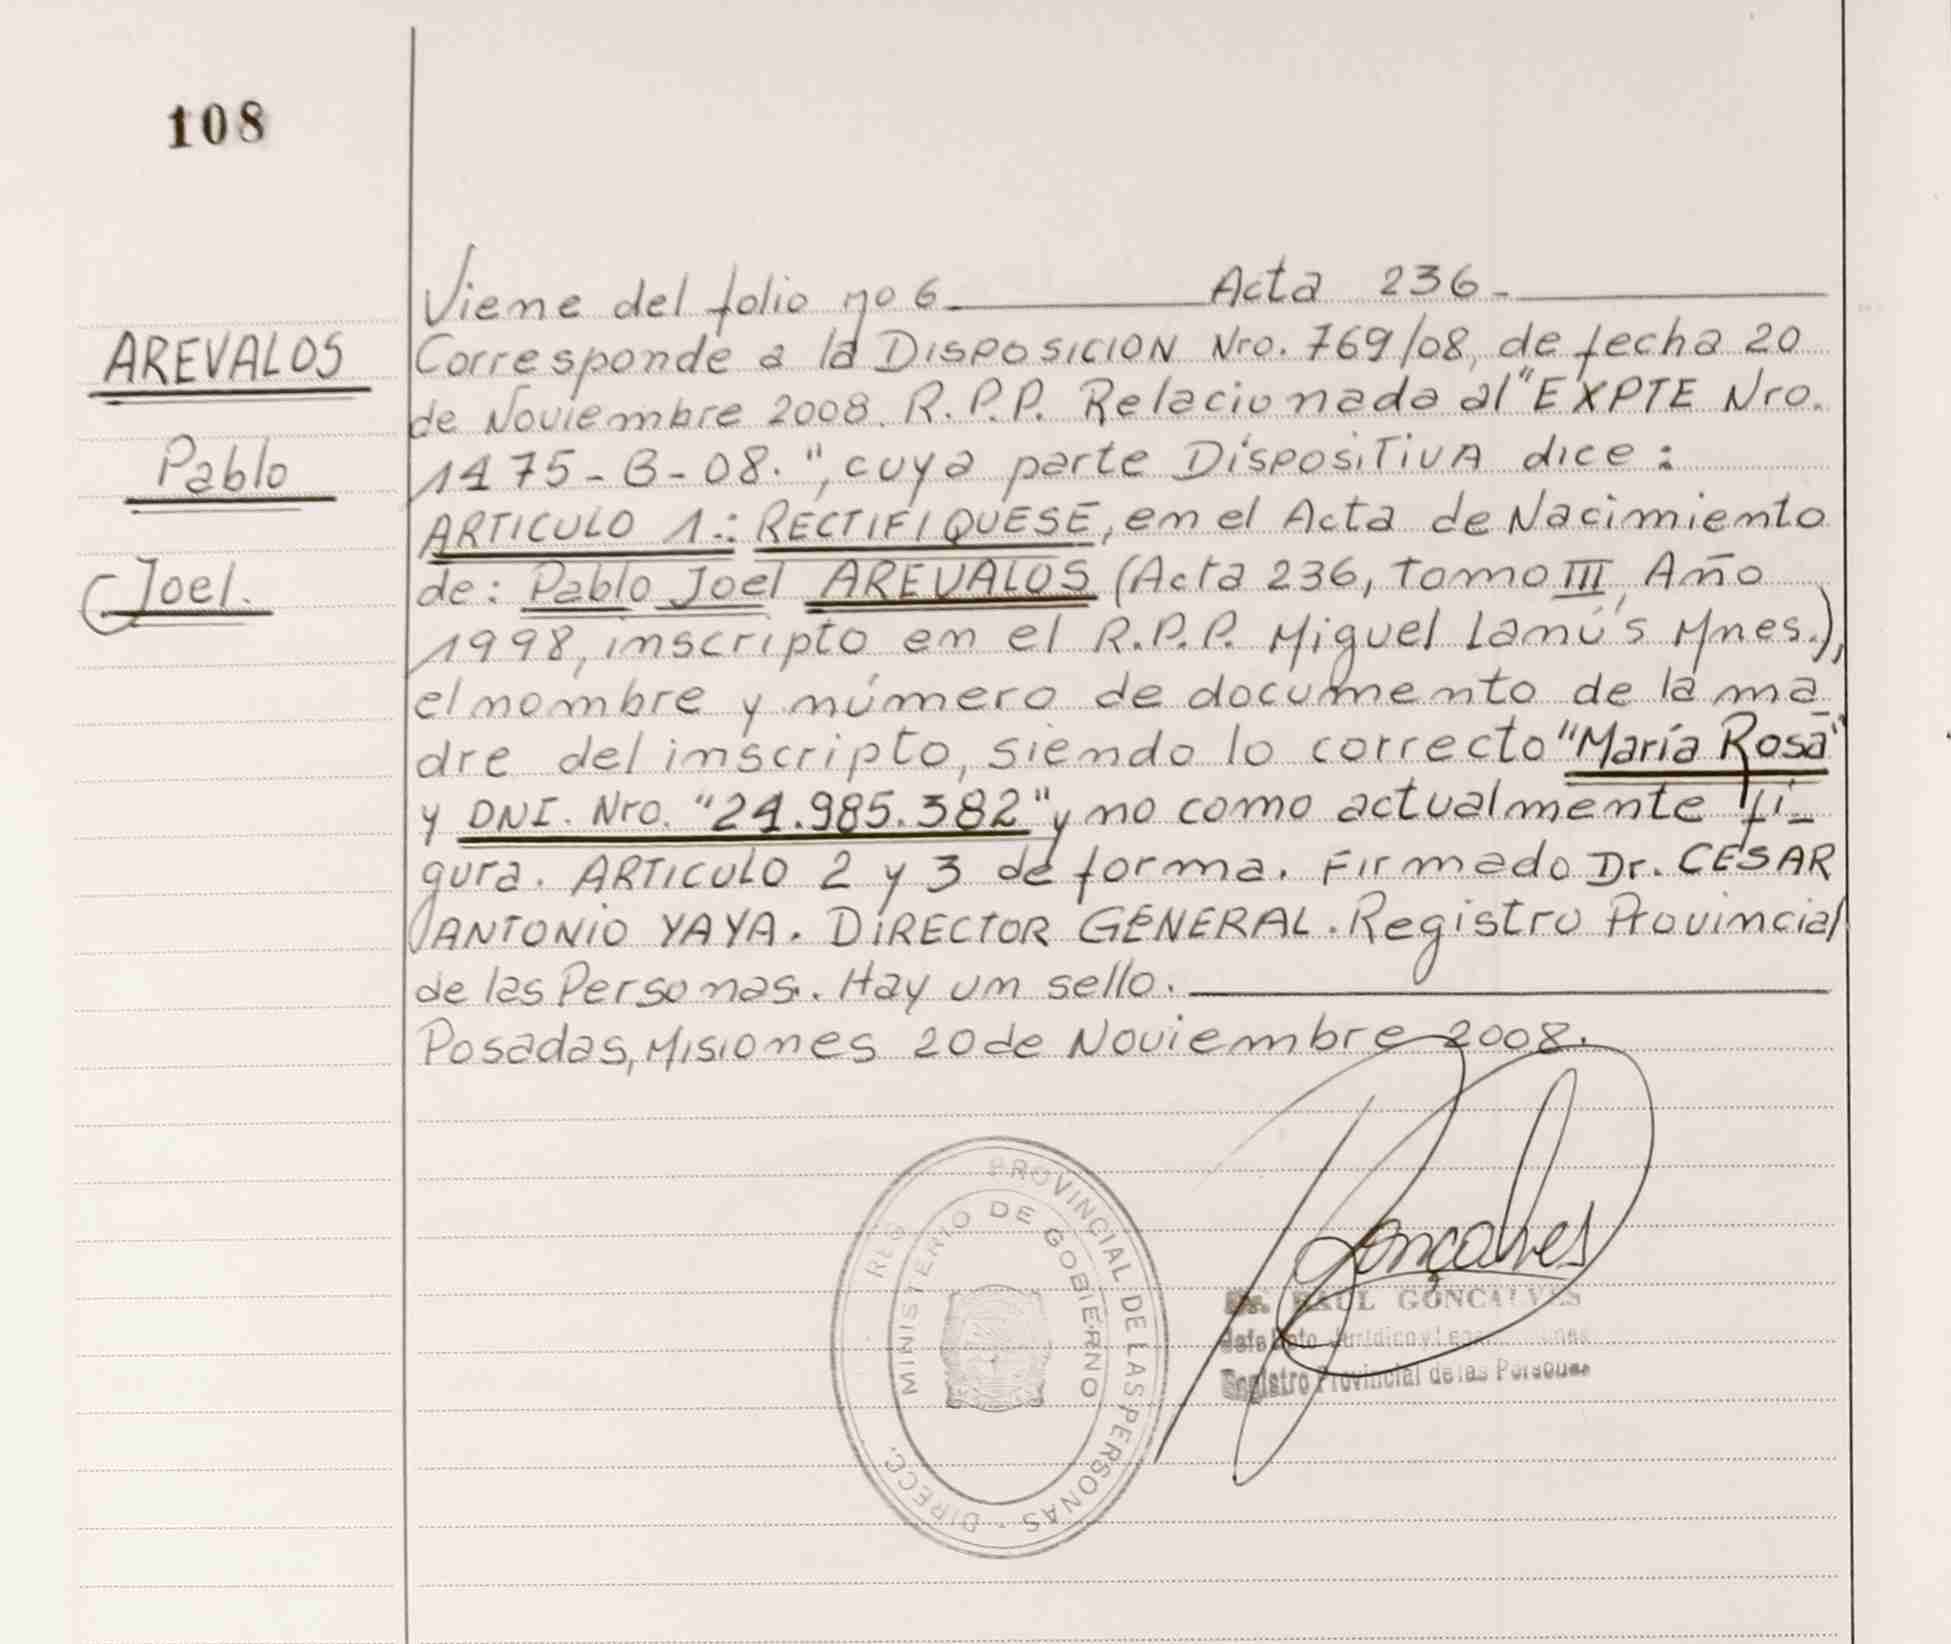 108
AREVALOS
Pablo
Joel.
Viene del folio nº 6 Acta 236.
Corresponde a la DISPOSICION Nro. 769/08, de fecha 20
de Noviembre 2008. R.P.P. Relacionada al "EXPTE Nro.
1475-B-08.", cuya parte DISPOSITIVA dice:
ARTICULO 1.: RECTIFIQUESE, en el Acta de Nacimiento
de: Pablo Joel AREVALOS (Acta 236, tomo III, Año
1998, inscripto en el R.P.P. Miguel Lanús Mnes.),
el nombre y número de documento de la ma
dre del inscripto, siendo lo correcto "María Rosa"
y DNI. Nro. "24.985.382" y no como actualmente fi-
gura. ARTICULO 2 y 3 de forma. Firmado Dr. CESAR
ANTONIO YAYA. DIRECTOR GENERAL. Registro Provincial
de las Personas. Hay un sello.
Posadas, Misiones 20 de Noviembre 2008.
PROVINCIAL DE LAS PERSONAS - DIRECC. REG
MINISTERIO DE GOBIERNO
Gonçalves
RAUL GONCALVES
Jefe Dpto Jurídico y
Registro Provincial de las Personas